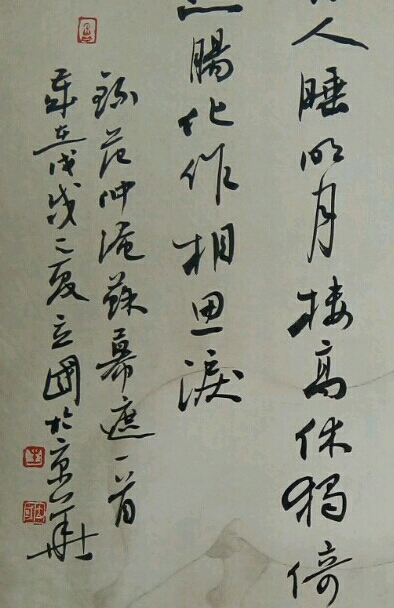 人睡明月楼高休獨倚
腸化作相思淚
錄范仲淹蘇幕遮一首
歲在戊戌之夏立國於京華